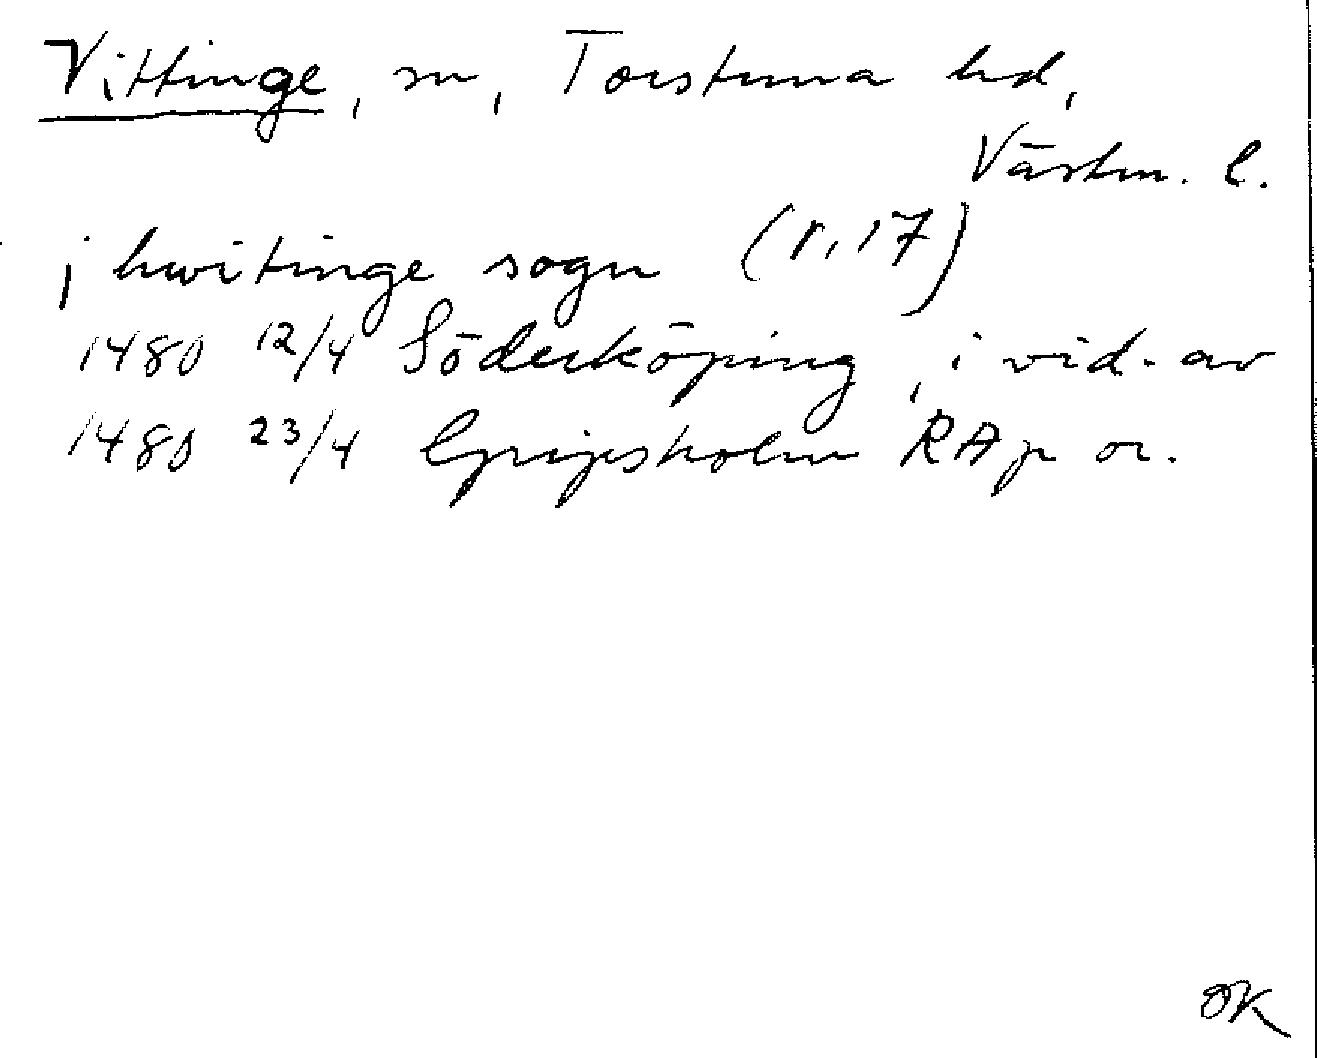 Vittinge, sn, Torstuna hd,
Västm. l.
j hwitinge sogn (r. 17)
1480 12/4 Söderköping, i vid. av
1480 23/4 Gripsholm RAp or.
OK